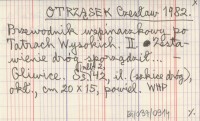 OTRZĄSEK Czesław 1982.
Przewodnik wspinaczkowy po
Tatrach Wysokich. II. Zesta-
wienie dróg sporządził... –
Gliwice. S. 42, il. (szkice dróg),
okł., cm 20 x 15, powiel. WBP